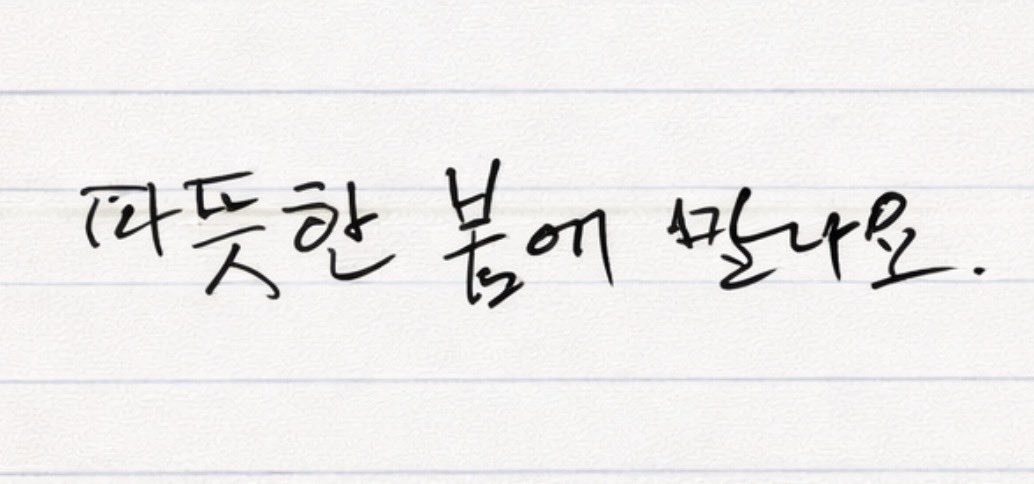 따뜻한 봄에 만나요.